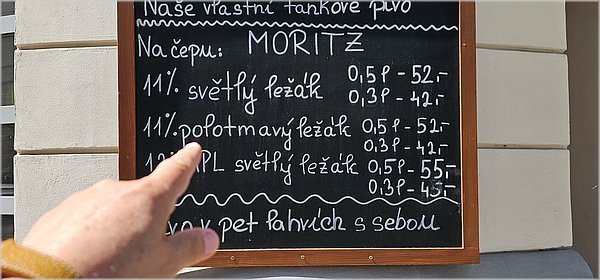 Naše vlastní tankové pivo
Na čepu: MORITZ
11% světlý ležák 0,5l - 52,-
0,3l - 42,-
11% polotmavý ležák 0,5l - 52,-
0,3l - 42,-
světlý ležák 0,5l - 55,-
0,3l - 45,-
v pet lahvích s sebou